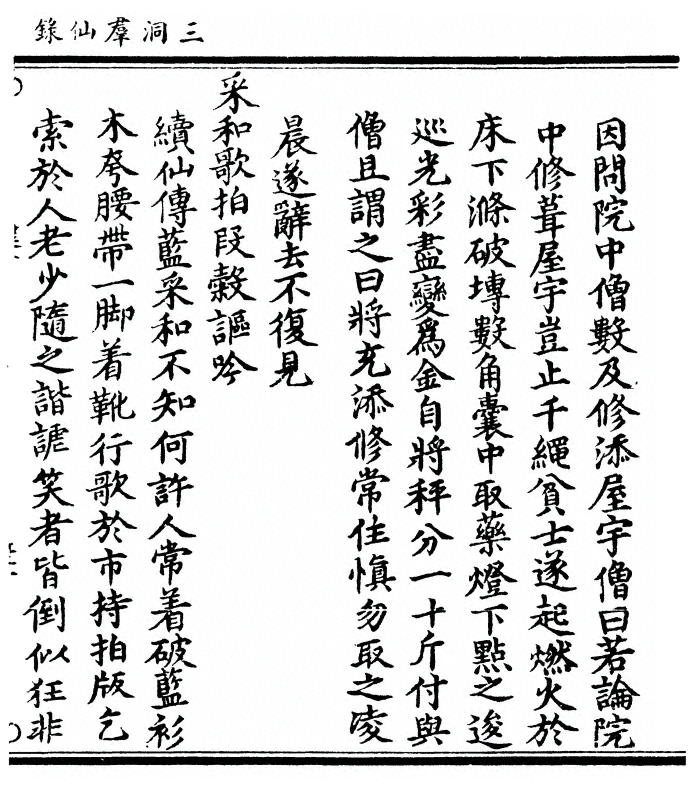 三洞羣仙錄
因問院中僧數及修添屋宇僧曰若論院
中修葺屋宇豈止千繩貧士遂起燃火於
床下滌破塼數角囊中取藥燈下點之逡
巡光彩盡變爲金自將秤分一十斤付與
僧且謂之曰將充添修常住慎勿取之凌
晨遂辭去不復見
采和歌拍段毅謳吟
續仙傳藍采和不知何許人常着破藍衫
木胯腰帶一脚着靴行歌於市持拍版乞
索於人老少隨之諧謔笑者皆倒似狂非